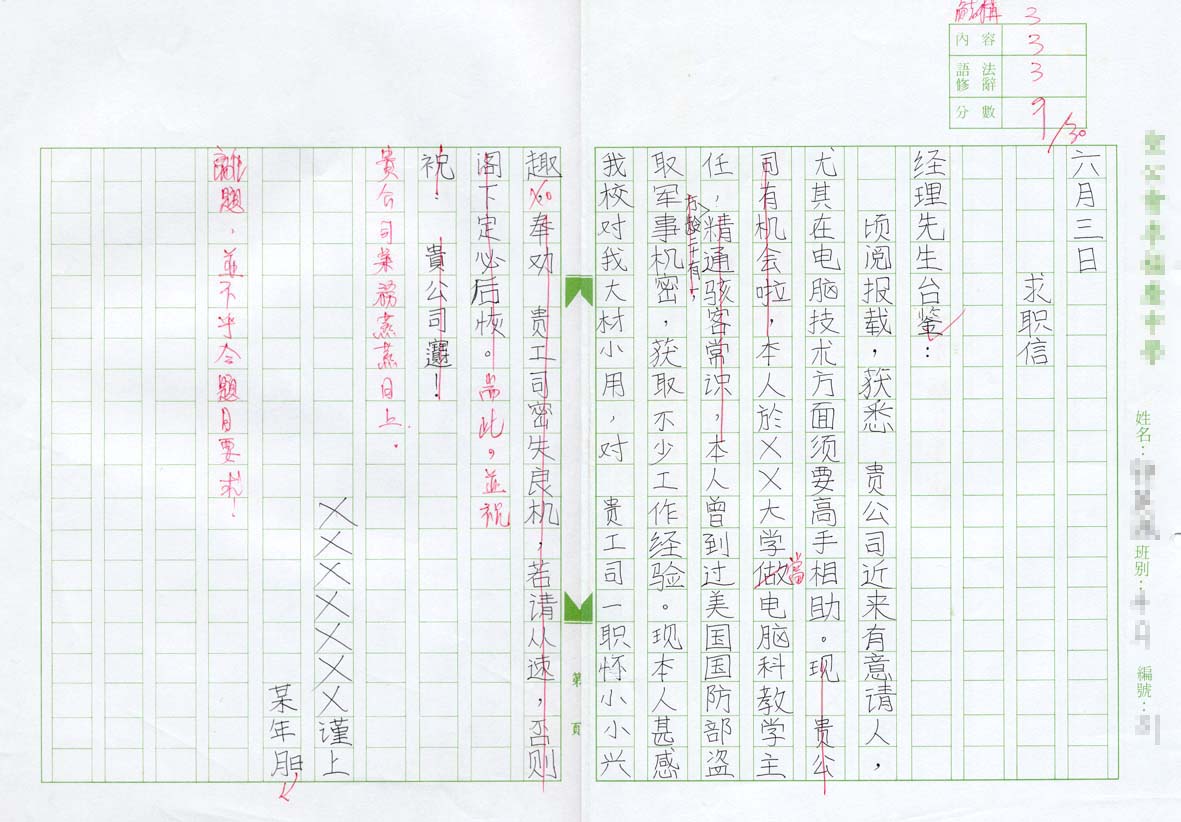 結構 3
內容 3
語法
修辭 3
分數 9/30
姓名：
班別：
編號：
六月三日
求职信
经理先生台鉴：
顷阅报载，获悉 贵公司近来有意请人，
尤其在电脑技术方面须要高手相助。现 贵公
司有机会啦，本人於XX大学做电脑科教学主
當
任，精通骇客常识，本人曾到过美国国防部盗
取军事机密，获取不少工作经验。现本人甚感
我校对我大材小用，对 贵工司一职怀小小兴
趣。奉劝 贵工司密失良机，若请从速，否则
阁下定必后恢。耑此，並祝
祝！ 貴公司
貴公司業務蒸蒸日上．
XXXXXXX谨上
某年
離題，並不乎合題目要求！
第 頁